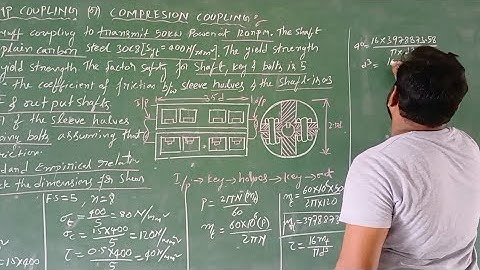 MP COUPLING (or) COMPRESION COUPLING:
uff coupling to transmit 50KW Power at 120rpm. The shaft
plain carbon steel 30C8 [Syt = 400N/mm²]. The yield strength
yield strength. The factor safety for shaft, key & bolts is 5
the coefficient of friction b/w sleeve halves & the shaft is 0.3
& output shafts
of the sleeve halves
assuming that
riction.
dard Empirical relation
k the dimensions for shear
3.5d
2.5d
I/P
O/P
I/p → key → halves → key → out
FS = 5, n = 8
σt = 400/5 = 80 N/mm²
σc = 1.5×400/5 = 120 N/mm²
τ = 0.5×400/5 = 40 N/mm²
= 1.5 × 400
P = 2πN(Mt)/60
Mt = 60×10⁶(P)/2πN
Mt = 60×10⁶×50/2π×120
Mt = 3978873
τ = 16Mt/πd³
40 = 16×3978873.58/π×d³
d³ =